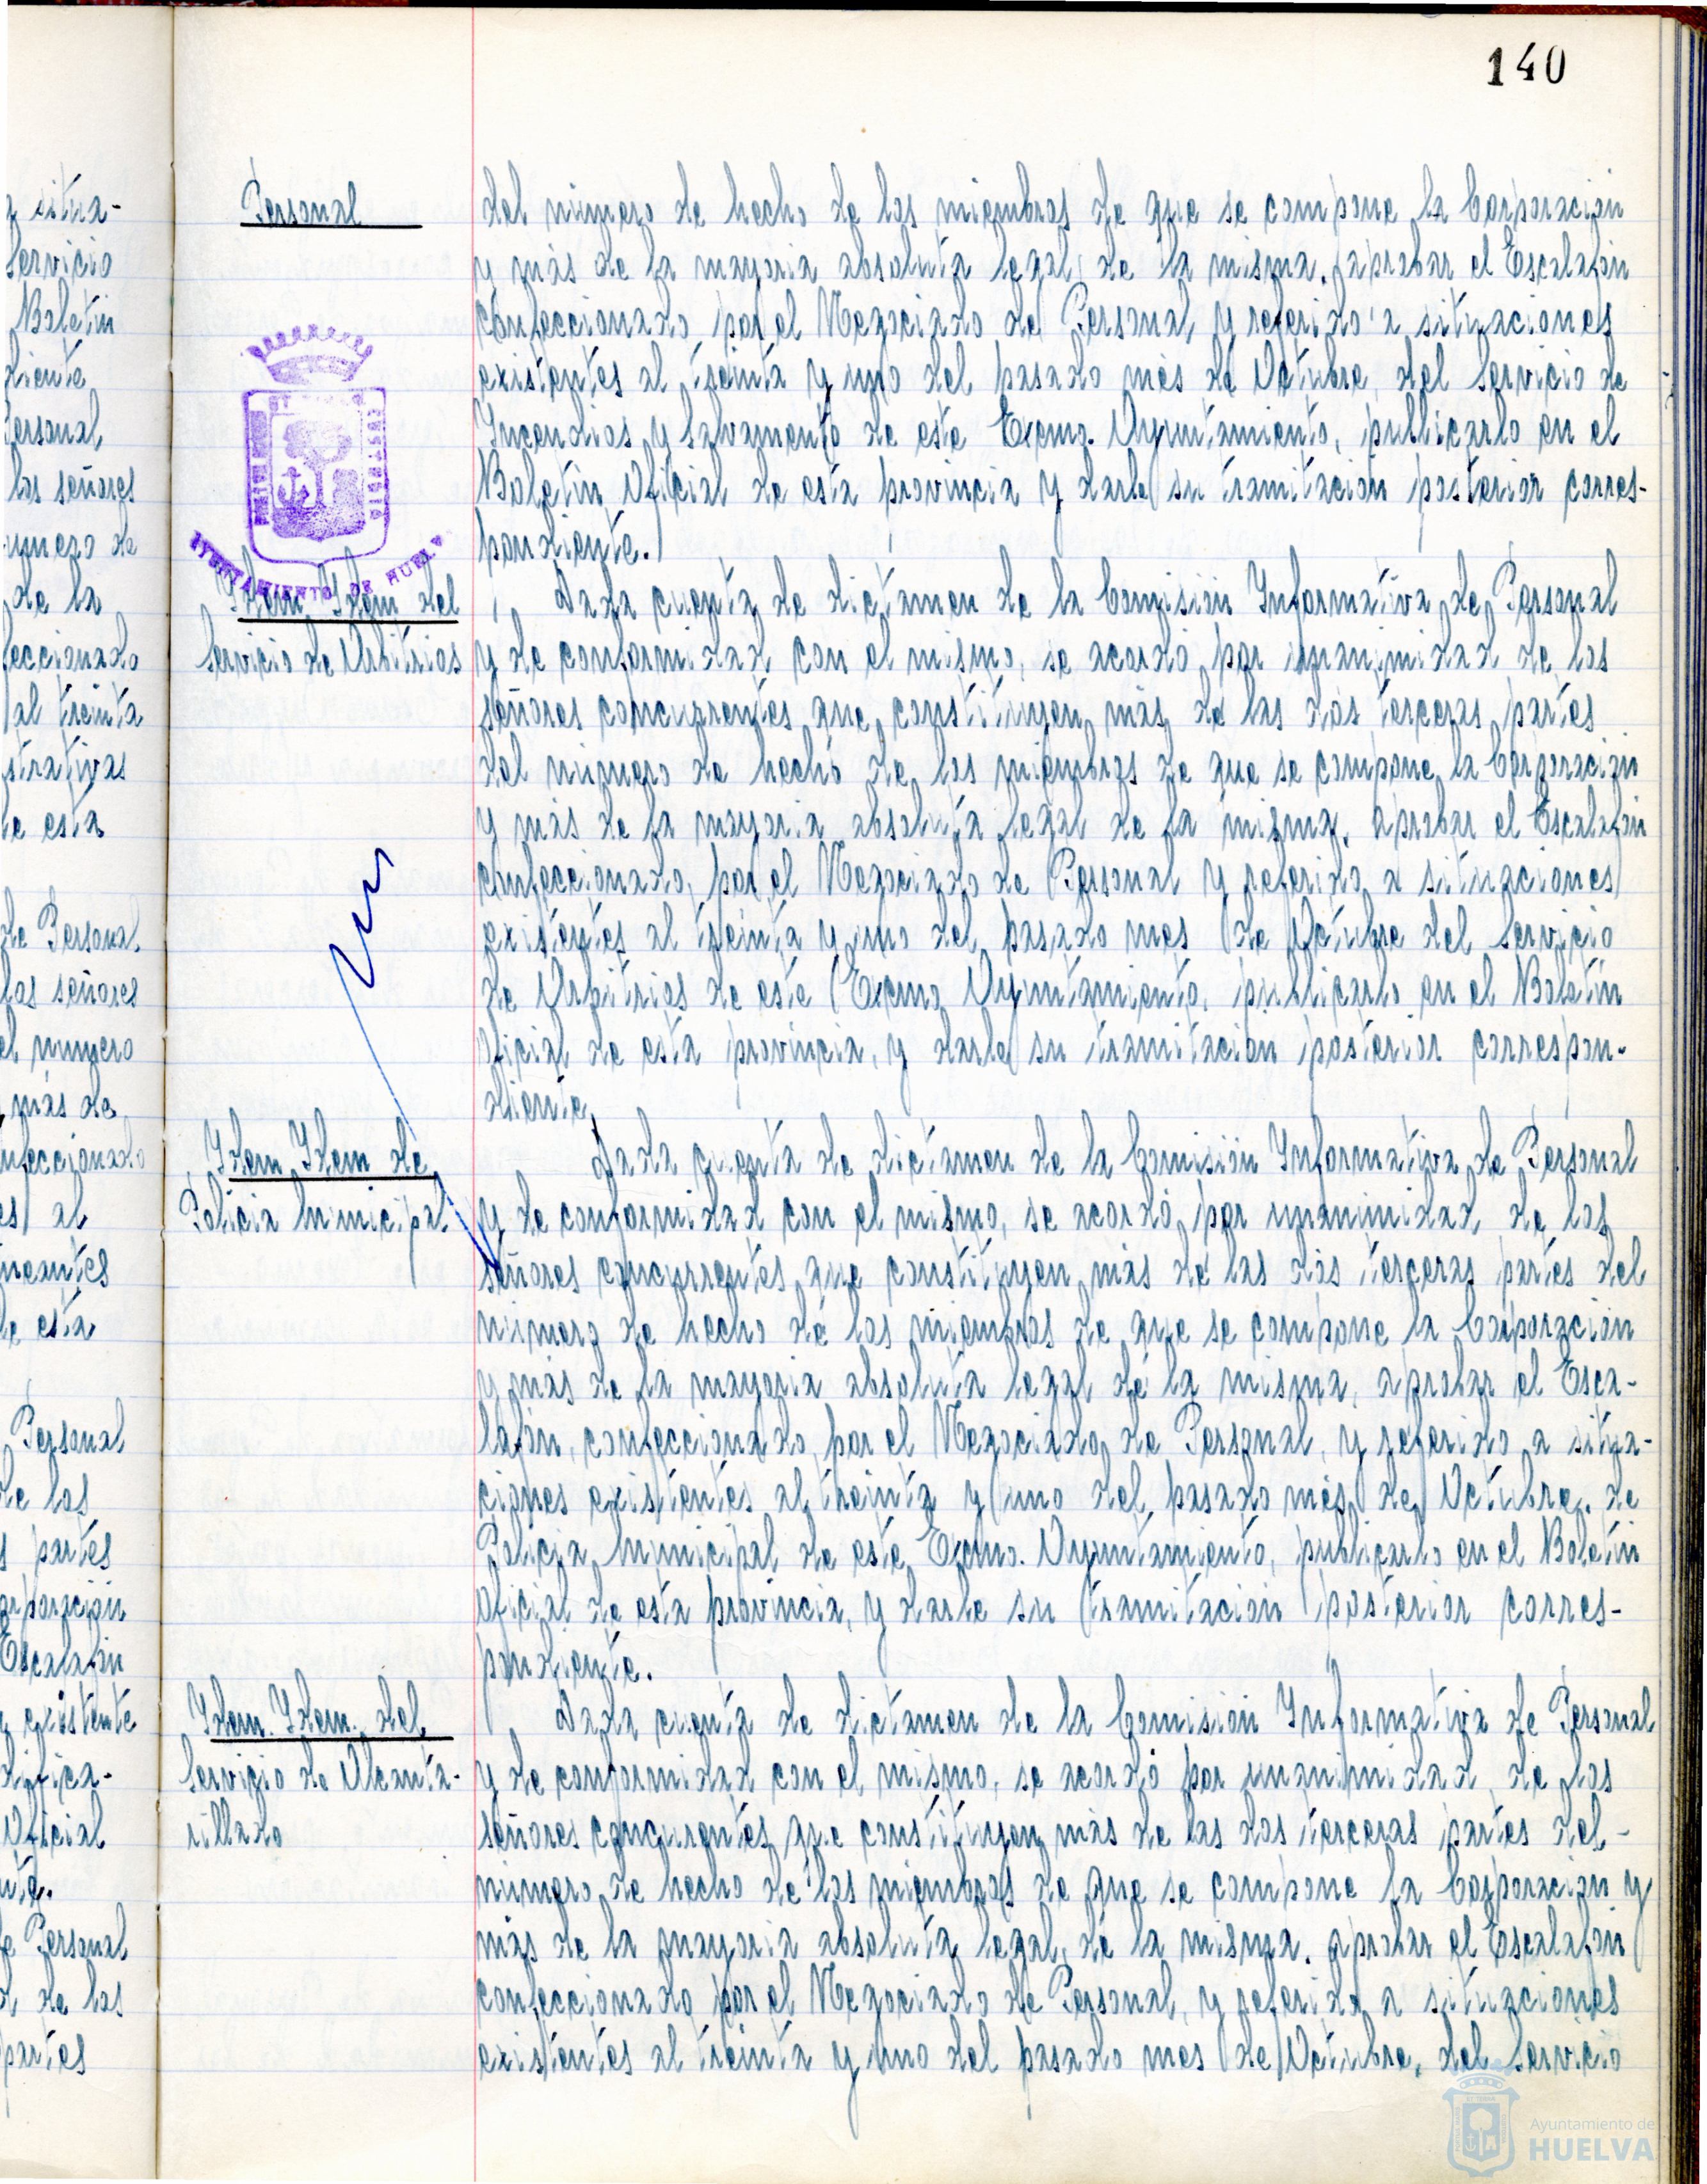 140
Personal
del número de hecho de los miembros de que se compone la Corporación
y más de la mayoria absoluta legal, de la misma, aprobar el Escalafón
confeccionado, por el Negociado de Personal y referido a situaciones
existentes al treinta y uno del pasado mes de Octubre, del Servicio de
Incendios y Salvamento de este Excmo. Ayuntamiento, publicarlo en el
Boletin Oficial de esta provincia y darle su tramitación posterior corres-
pondiente.
AYUNTAMIENTO DE HUELVA
Idem Idem del
Servicio de Arbitrios
Dada cuenta de dictamen de la Comisión Informativa de Personal
y de conformidad con el mismo, se acordó por unanimidad de los
señores concurrentes que constituyen más de las dos terceras partes
del número de hecho de los miembros de que se compone la Corporación
y más de la mayoria absoluta legal de la misma, aprobar el Escalafón
confeccionado, por el Negociado de Personal y referido a situaciones
existentes al treinta y uno del pasado mes de Octubre del Servicio
de Arbitrios de este Excmo Ayuntamiento, publicarlo en el Boletín
Oficial de esta provincia, y darle su tramitación posterior correspon-
diente.
Idem Idem de
Policia Municipal
Dada cuenta de dictamen de la Comisión Informativa de Personal
y de conformidad con el mismo, se acordó, por unanimidad, de los
señores concurrentes que constituyen más de las dos terceras partes del
número de hecho de los miembros de que se compone la Corporación
y más de la mayoria absoluta legal de la misma, aprobar el Esca-
lafón, confeccionado, por el Negociado de Personal, y referido a situa-
ciones existentes al treinta y uno del pasado mes de Octubre, de
Policia Municipal de este Excmo. Ayuntamiento, publicarlo en el Boletin
Oficial de esta provincia, y darle su tramitación posterior corres-
pondiente.
Idem. Idem. del
Servicio de Alcanta-
rillado
Dada cuenta de dictamen de la Comisión Informativa de Personal
y de conformidad con el mismo, se acordó por unanimidad, de los
señores concurrentes que constituyen más de las dos terceras partes del-
número de hecho de los miembros de que se compone la Corporación y
más de la mayoria absoluta legal, de la misma, aprobar el Escalafón
confeccionado por el Negociado de Personal, y referido a situaciones
existentes al treinta y uno del pasado mes de Octubre, del Servicio
situa-
Servicio
Boletin
diente
Personal
los señores
número de
de la
feccionado
al treinta
strativas
de esta
de Personal
los señores
el número
más de
nfeccionado
es al
de esta
Personal
de los
s partes
orporación
Escalafón
existente
difica-
Oficial
nte.
de Personal
d de los
partes
Ayuntamiento de
HUELVA